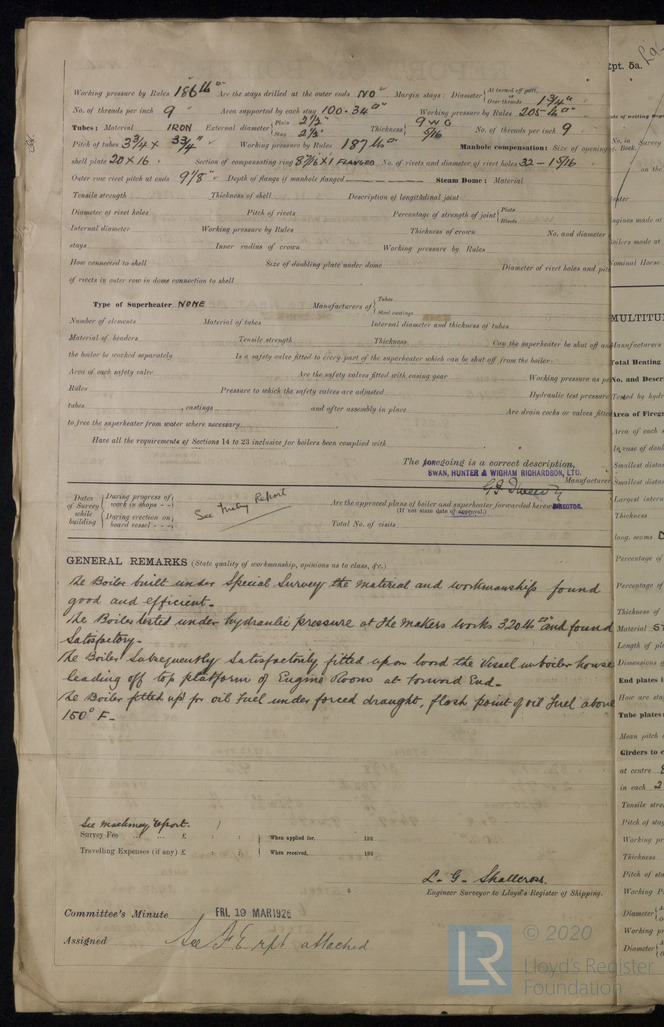 Working pressure by Rules 186 lb □" Are the stays drilled at the outer ends NO Margin stays: Diameter { At turned off part, or Over threads 1 3/4"
No. of threads per inch 9 Area supported by each stay 100.34 □" Working pressure by Rules 205 lb □"
Tubes: Material IRON External diameter { Plain 2 1/2" Stay 2 1/2" Thickness { 9 WG 5/16 No. of threads per inch 9
Pitch of tubes 3 3/4 x 3 3/4" Working pressure by Rules 187 lb □" Manhole compensation: Size of opening
shell plate 20 x 16 Section of compensating ring FLANGED No. of rivets and diameter of rivet holes 32 - 15/16
Outer row rivet pitch at ends 9 1/8" Depth of flange if manhole flanged Steam Dome: Material
Tensile strength Thickness of shell Description of longitudinal joint
Diameter of rivet holes Pitch of rivets Percentage of strength of joint { Plate Rivets
Internal diameter Working pressure by Rules Thickness of crown No. and diameter
stays Inner radius of crown Working pressure by Rules
How connected to shell Size of doubling plate under dome Diameter of rivet holes and pit
of rivets in outer row in dome connection to shell
Type of Superheater NONE Manufacturers of { Tubes Steel castings
Number of elements Material of tubes Internal diameter and thickness of tubes
Material of headers Tensile strength Thickness Can the superheater be shut off an
the boiler be worked separately Is a safety valve fitted to every part of the superheater which can be shut off from the boiler
Area of each safety valve Are the safety valves fitted with easing gear Working pressure as pe
Rules Pressure to which the safety valves are adjusted Hydraulic test pressure
tubes , castings and after assembly in place Are drain cocks or valves fitted
to free the superheater from water where necessary
Have all the requirements of Sections 14 to 23 inclusive for boilers been complied with
The foregoing is a correct description,
SWAN, HUNTER & WIGHAM RICHARDSON, LTD.
Manufacturer
DIRECTOR.
Dates of Survey while building { During progress of work in shops - - During erection on board vessel - - -
See Report
Are the approved plans of boiler and superheater forwarded herew
(If not state date of approval.)
Total No. of visits
GENERAL REMARKS (State quality of workmanship, opinions as to class, &c.)
The Boiler built under Special Survey the material and workmanship found
good and efficient.
The Boiler tested under hydraulic pressure at the makers works 320 lb □" and found
Satisfactory.
The Boiler Subsequently Satisfactorily fitted up on board the Vessel in boiler house
leading off top platform of Engine Room at Forward End.
The Boiler fitted up for oil Fuel under forced draught, flash point of oil Fuel above
150° F.
See machinery report.
Survey Fee ... ... £ : : { When applied for, 192
Travelling Expenses (if any) £ : : { When received, 192
L. G. Shallcross.
Engineer Surveyor to Lloyd's Register of Shipping.
Committee's Minute FRI. 19 MAR 1926
Assigned See F.E. rpt attached
Rpt. 5a.
No. in Survey
Book.
on the
Engines made at
Boilers made at
Nominal Horse
MULTITU
Manufacturers
Total Heating
No. and Descr
Tested by hydr
Area of Firegr
Area of each s
In case of donk
Smallest dista
Smallest dista
Largest intern
Thickness
long. seams
Percentage of
Percentage of
Thickness of
Material
Length of pla
Dimensions o
End plates i
How are stay
Tube plates
Mean pitch o
Girders to c
at centre
in each 2
Tensile stre
Pitch of stay
Working pr
Thickness
Pitch of sta
Working P
Diameter
Working pr
Diameter
LR © 2020
Lloyd's Register
Foundation